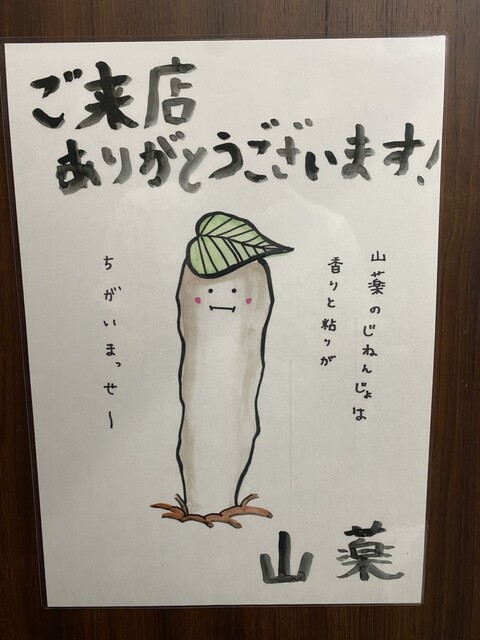 ご来店
ありがとうございます!
山薬のじねんじょは
香りと粘りが
ちがいまっせ～
山薬